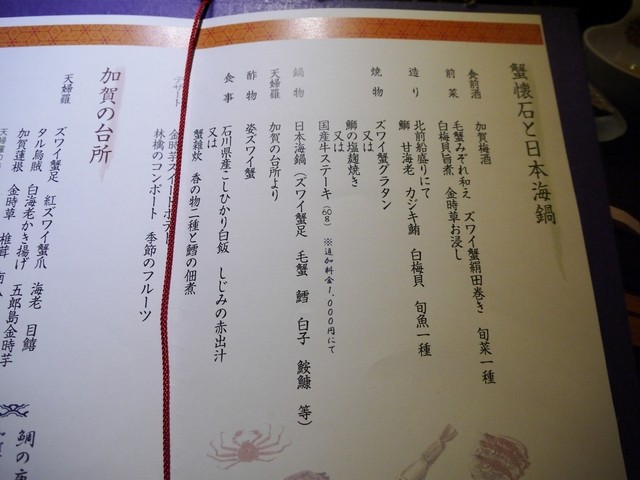 蟹懐石と日本海鍋
食前酒 加賀梅酒
前菜 毛蟹みぞれ和え ズワイ蟹絹田巻き 旬菜一種
白梅貝旨煮 金時草お浸し
造り 北前船盛りにて
鰤 甘海老 カジキ鮪 白梅貝 旬魚一種
焼物 ズワイ蟹グラタン
又は
鰤の塩麹焼き
又は
国産牛ステーキ(60g) ※追加料金1,000円にて
鍋物 日本海鍋(ズワイ蟹足 毛蟹 鱈 白子 鮟鱇 等)
天婦羅 加賀の台所より
酢物 姿ズワイ蟹
食事 石川県産こしひかり白飯 しじみの赤出汁
又は
蟹雑炊 香の物二種と鱈の佃煮
デザート 金時芋スイートポテト
林檎のコンポート 季節のフルーツ
加賀の台所
天婦羅 ズワイ蟹足 紅ズワイ蟹爪 海老 目鱚
タル烏賊 白海老かき揚げ 五郎島金時芋
加賀蓮根 金時草 椎茸
鯛の